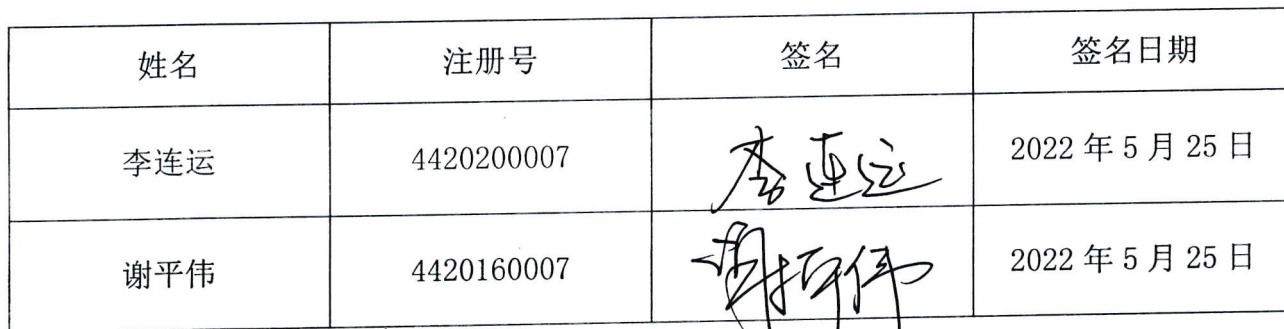 姓名 注册号 签名 签名日期
李连运 4420200007 李连运 2022 年 5 月 25 日
谢平伟 4420160007 谢平伟 2022 年 5 月 25 日